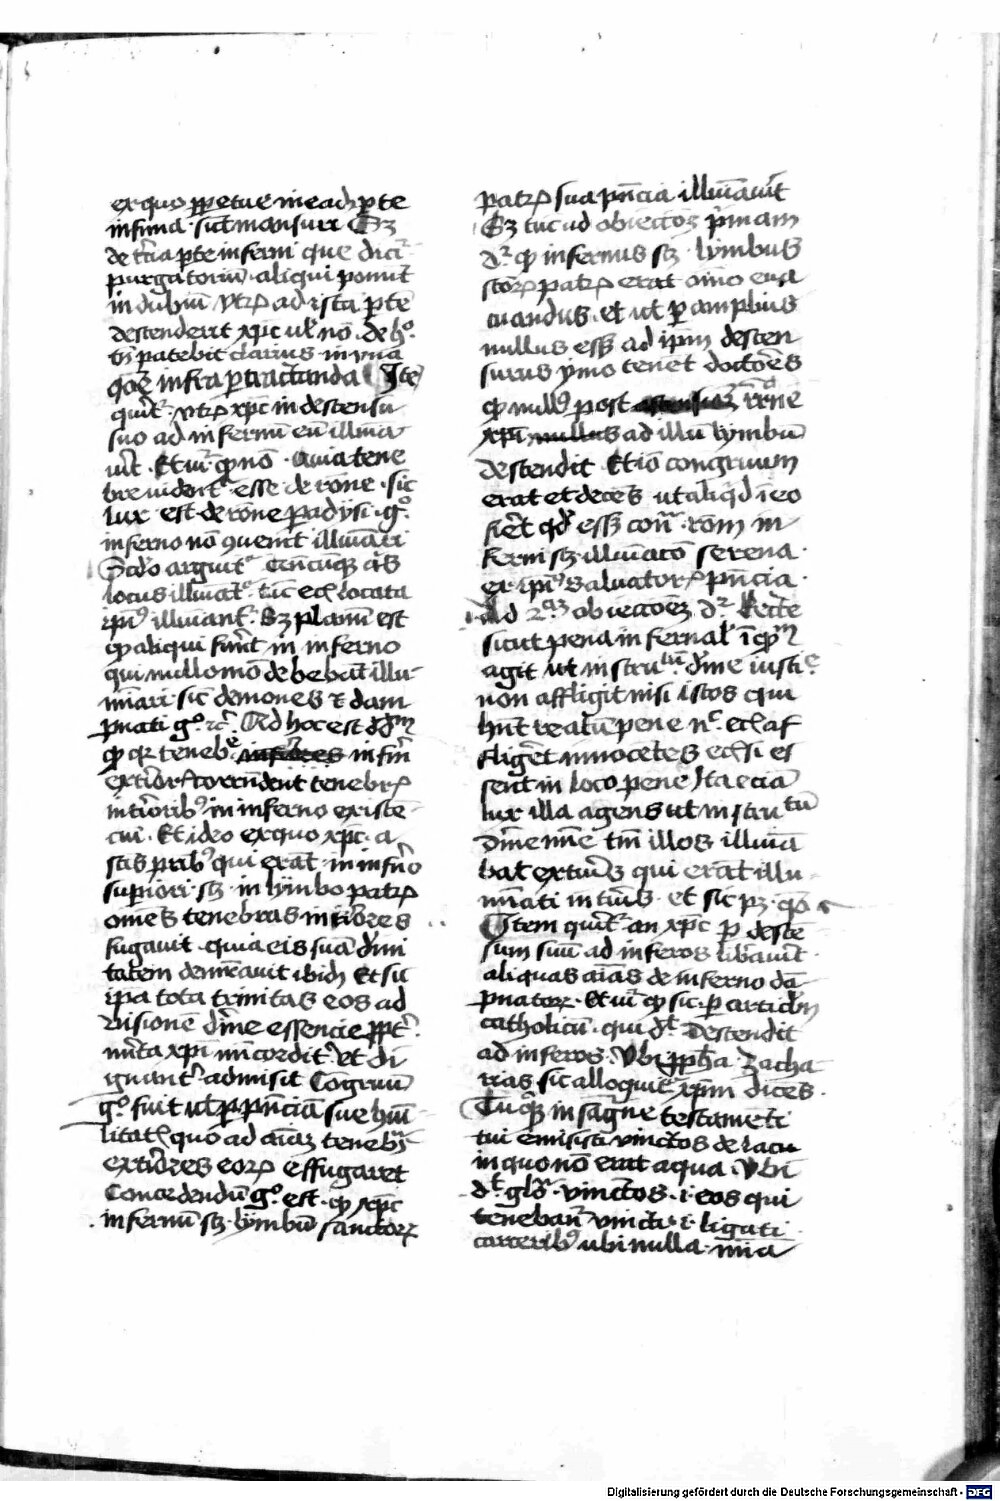 ex quo ꝑpetue in eadꝫ ꝑte
infima · sūt mansuri Sꝫ
de tͥcia ꝑte inferni que dicit̄
purgatoriū · aliqui ponūt
in dubiū vtrꝫ ad ista ꝑte
descenderit xp̄c ul̓ nō · de hͦ ·
tn̄ patebit clarius in vna
qōe infra ꝑtractanda Ite
querit̄ · vtrꝫ xp̄c in descensu
suo ad infernū eū illūia
uit · Et vr̄ ꝙ nō · Quia tene
bre uident̄ esse de rōne · sic
lux est de rōne ꝑadysi · gͦ ·
inferno nō ꝯuenit illuīari
Scd̓o arguit̄
locus illuīat̄ · tūc ecꝫ locata
ip̄i⁹ illuīant̄ · Sꝫ planū est
ꝙ aliqui fuer̄t in inferno
qui nullo mō debebāt illu
minari · sic demones ⁊ dam
pnati gͦ · ⁊c̄ · Ad hoc est dd̄m
ꝙ qꝛ teneb̄e inferiores in inf̄ni
exteriorꝫ tenebrꝫ
interiorib⁹ in inferno existē
· Et ideo ex quo xp̄c · a
ꝑrib⁹ qui erāt in inf̄no
superiori · sꝫ · in lymbo patrꝫ
omēs tenebras intͥores
fugauit · quia eis suā diui
tatem demōcauit ibidꝫ Et sic
ip̄a tota trinitas eos ad
visionē dīne essencie ꝓptͬ ·
mīta xp̄i mīcordit̓ et di
gnant̓ admisit Congruū
gͦ · fuit ut ꝑ p̄nciā sue hūi
litatꝫ quo ad aīaꝫ tenebras
extͥores eorꝫ effugaret
Concedendū gͦ · est · ꝙ xp̄c
infernū sꝫ · lymbū sanctorꝫ
patrꝫ sua p̄ncia illuīauit
Sꝫ tūc ad obiectōꝫ p̄mam
dr̄ ꝙ infernus sꝫ · lymbus
sc̄orꝫ patrꝫ erat oīno eua
cuandus · et ut ꝑ amplius
nullus ess̄ ad ip̄m descen
surus ymo tenent doctoēs
ꝙ null⁹ post
xp̄i nullus ad illū lymbū
descendit Et iō congruum
erat et decēs ut aliqͥd ī eo
fieͬt qd̓ ess̄ contͣ · rōm in
ferni sꝫ · illuīacō serena ·
ex ip̄i⁹ saluatorꝫ p̄ncia ·
Ad 2ᵃᵐ obiectoēꝫ dr̄ · Recte
sicut pena infernal̓ īqͫꝫ
agit ut instrutū dīne iustīe
non affligit nisi istos qui
hn̄t reatū pene nͨ ecꝫ af
fligēt innocētes ecꝫ si es
sent in loco pene Ita eciā
lux illa agens ut instrutū
dīne mīe tm̄ illos illuīa
bat extuīs qui erāt illu
mīati intuīs · et sic pꝫ · qō
Item querit̄ · an xp̄c ꝑ descē
sum suū ad inferos libͣauit
aliquas aīas de inferno dā
pnatorꝫ · Et vr̄ ꝙ sic · ꝑ articulū
catholicū · qui dr̄ Descendit
ad inferos · Vbi ꝓph̄a · Zacha
rias sic alloquit̄ xp̄m dicēs ·
Tu qͦꝫ in sāgͥne testamēti
tui emisisti vinctos de lacu
in quo nō erat aqua · Vbi
dr̄ glō · vinctos · i · eos qui
tenebant̄ vincti · i · ligati
carcerib⁹ ubi nulla · mīa
Digitalisierung gefördert durch die Deutsche Forschungsgemeinschaft - DFG